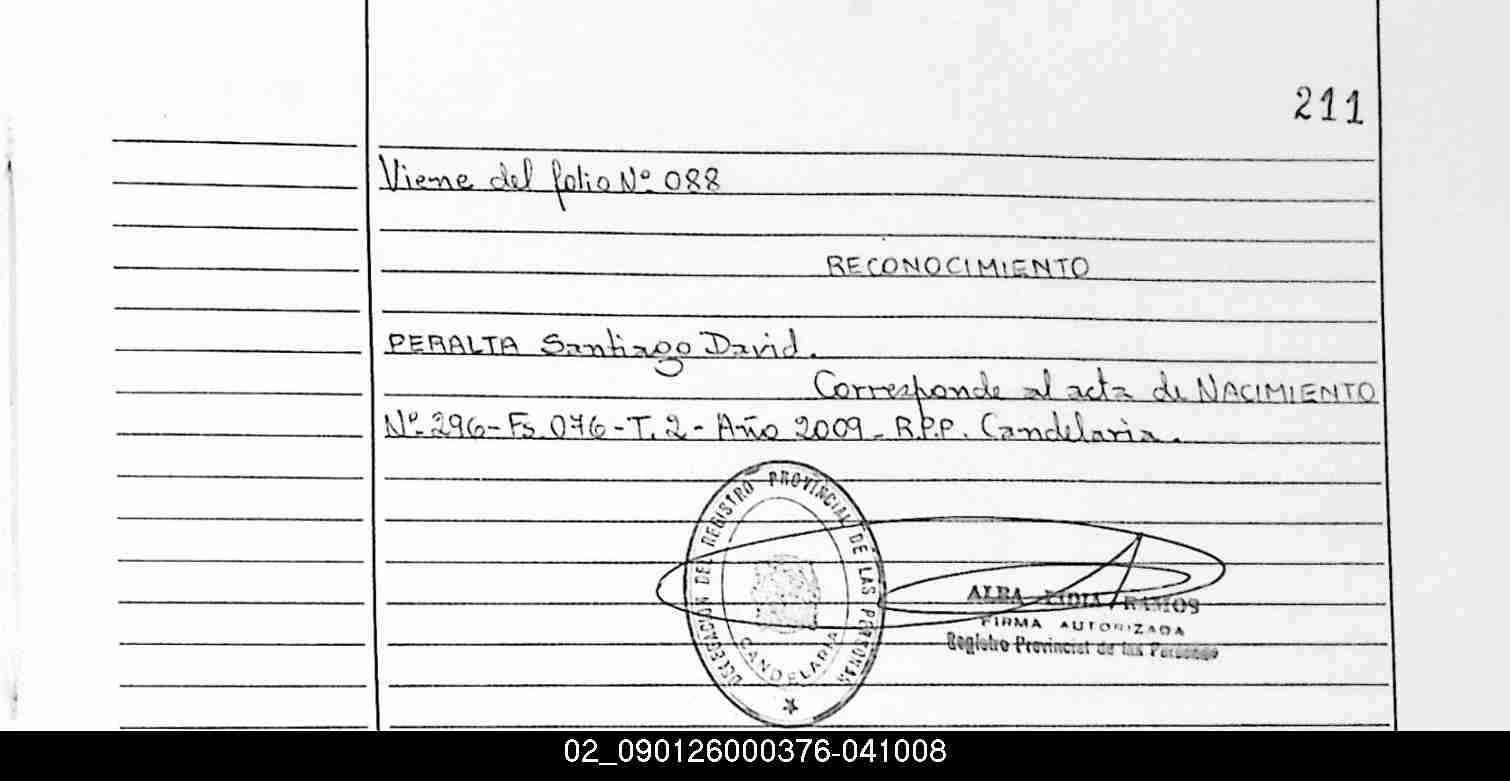 211
Viene del folio Nº 088
RECONOCIMIENTO
PERALTA Santiago David.
Corresponde al acta de NACIMIENTO
Nº-296-Fs.076-T.2-Año 2009-R.P.P. Candelaria.
DELEGACION DEL REGISTRO PROVINCIAL DE LAS PERSONAS
CANDELARIA
ALBA LIDIA RAMOS
FIRMA AUTORIZADA
Registro Provincial de las Personas
02_090126000376-041008